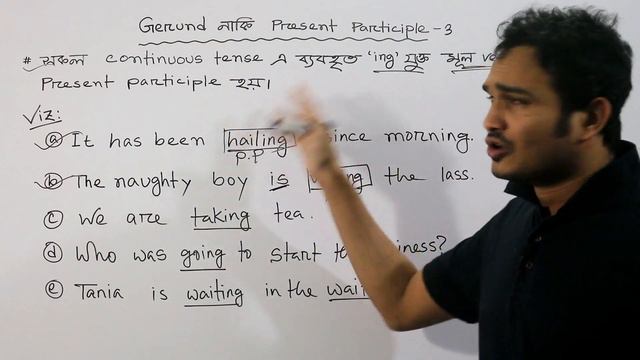 Gerund নাকি Present Participle - 3
# সকল continuous tense এ ব্যবহৃত 'ing' যুক্ত মূল
Present participle হয়।
Viz:
ⓐ It has been hailing since morning.
P.P
ⓑ The naughty boy is the lass.
ⓒ We are taking tea.
ⓓ Who was going to start
ⓔ Tania is waiting in the